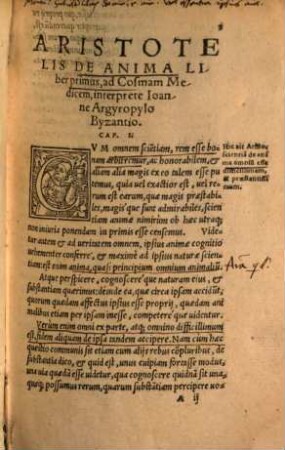 ARISTOTE
LIS DE ANIMA LI
ber primus, ad Cosmam Me
dicem, interprete Ioan
ne Argyropylo
Byzantio.
CAP. I.
CVM omnem sciẽtiam, rem esse bonam
arbitremur, ac honorabilem, &
aliam alia magis ex eo talem esse pu
temus, quia uel exactior est, uel re
rum est earum, quæ magis præstabi
les, magis quę sunt admirabiles, sciẽ
tiam animæ nimirum ob hæc utraq;
non iniuria ponendam in primis esse censemus. Vide
tur autem & ad ueritatem omnem, ipsius animæ cognitio
uehementer conferre, & maxime ad ipsius naturæ scien
tiam: est enim anima, quasi principium omnium animaliũ.
Atque perspicere, cognoscereq́ue naturam eius, &
substantiam quærimus: deinde ea, quæ circa ipsam accidũt,
quorum quædam affectus ipsius esse proprij, quædam ani
malibus etiam per ipsam inesse, competereq́ue uidentur.
Verum enim omni ex parte, atq; omnino difficillimum
est, fidem aliquam de ipsa tandem accipere. Nam cum hæc
quæstio communis sit etiam cum alijs rebus cõpluribus, de
substantia dico, & quid est, unus cuipiam forsitan modus,
una uia quædã esse uidetur, qua cognoscere quidnã sit una
quæq; possumus rerum, quarum substãtiam percipere uo=
A ij
difficillimam,
& præstantissi
mam.